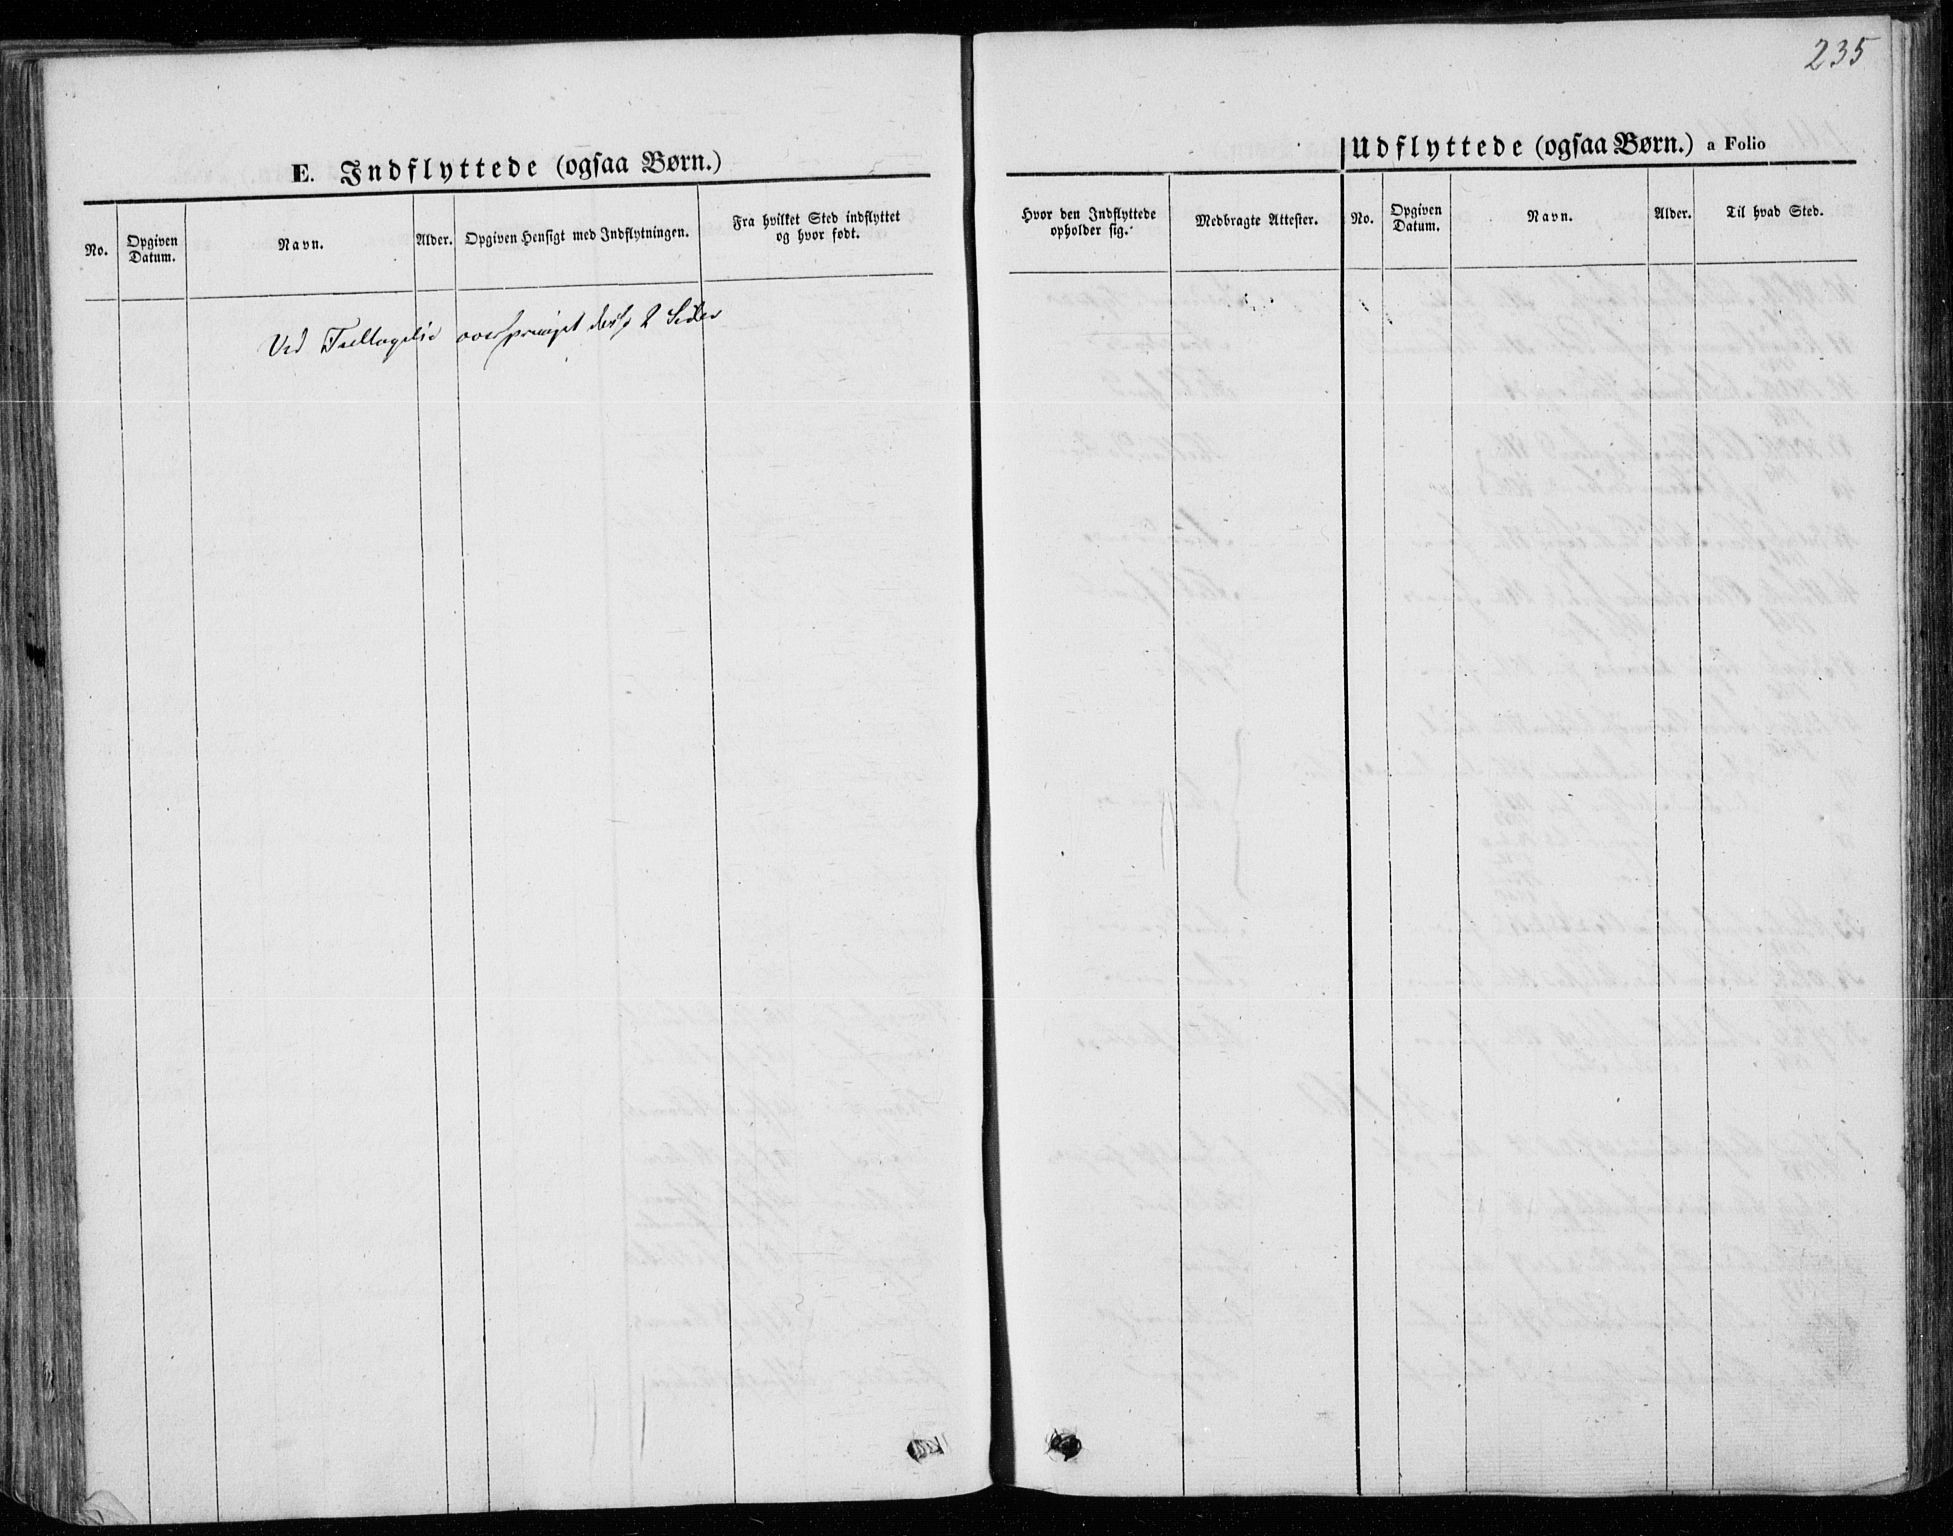 235
E. Indflyttede (ogsaa Børn.)
No. Opgiven Datum. Navn. Alder. Opgiven Hensigt med Indflytningen. Fra hvilket Sted indflyttet og hvor født.
Ved Feiltagelse oversprunget disse 2 Sider
Udflyttede (ogsaa Børn.) a Folio
Hvor den Indflyttede opholder sig. Medbragte Attester. No. Opgiven Datum. Navn. Alder. Til hvad Sted.